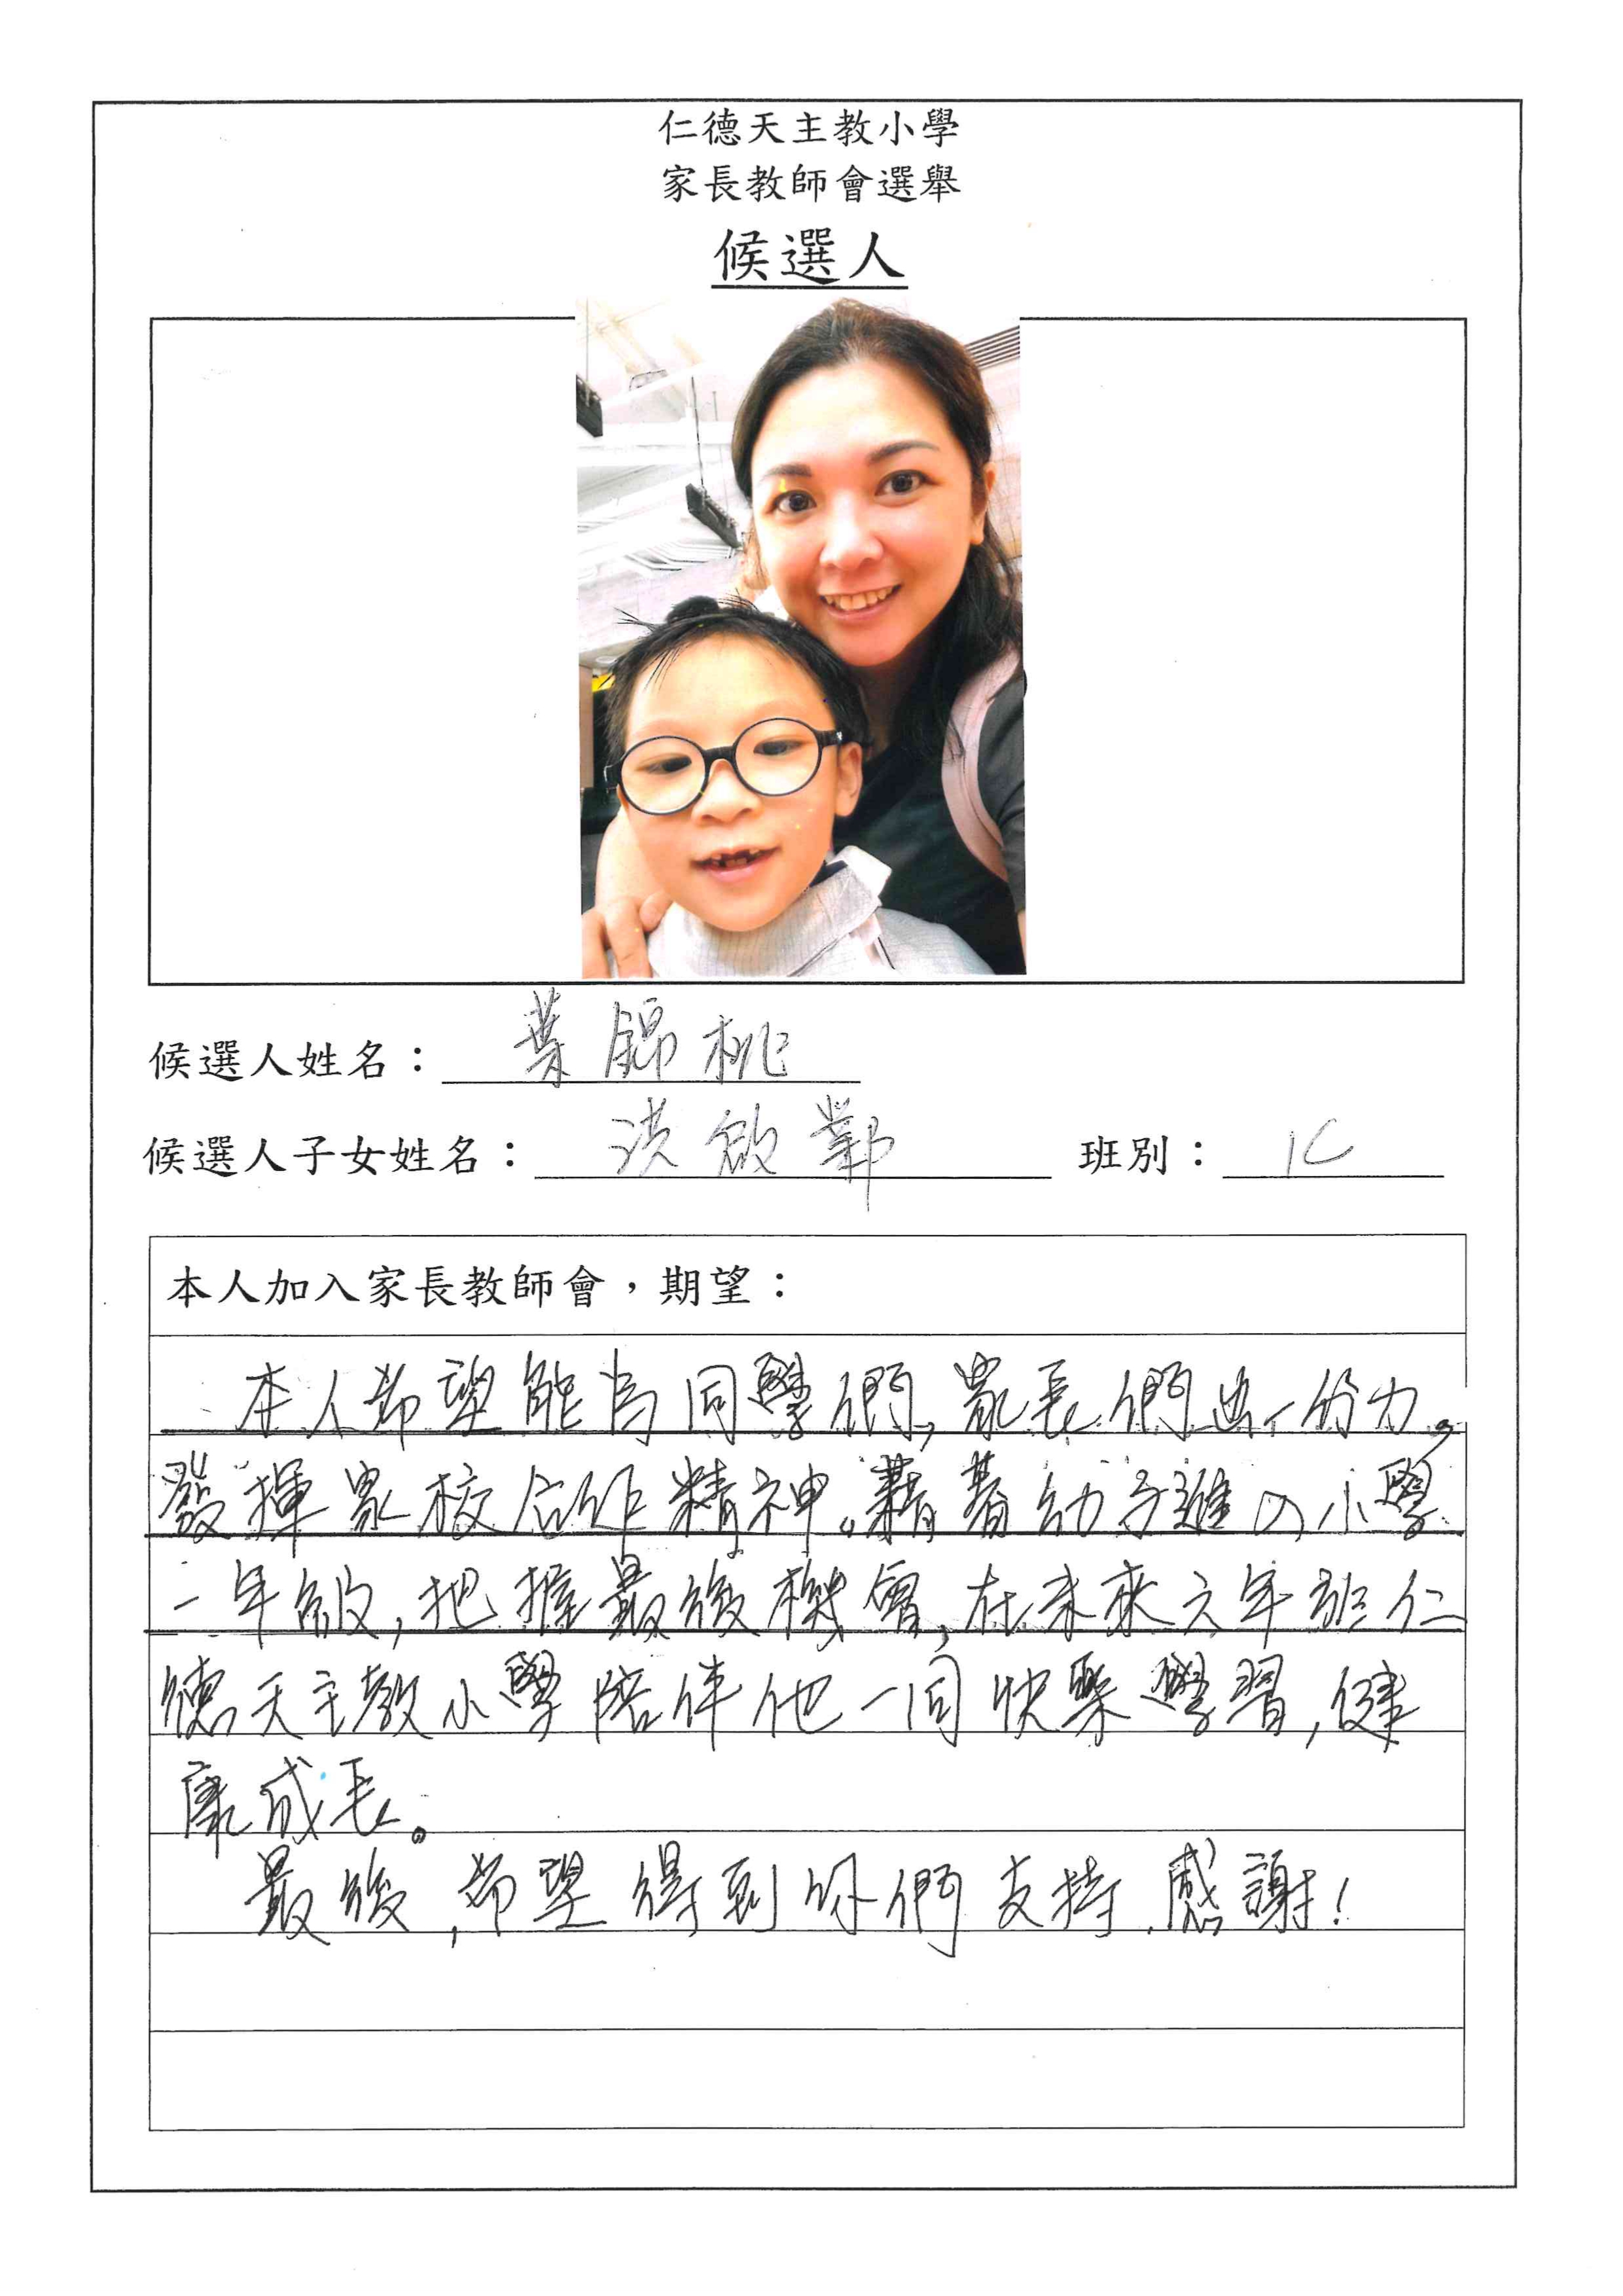 仁德天主教小學
家長教師會選舉
候選人
候選人姓名：葉錦桃
候選人子女姓名：洪啟鄴 班別：1C
本人加入家長教師會，期望：
本人希望能為同學們,家長們出一份力,
發揮家校合作精神。藉著幼子進入小學
一年級,把握最後機會,在未來六年於仁
德天主教小學陪伴他一同快樂學習,健
康成長。
最後,希望得到你們支持,感謝!